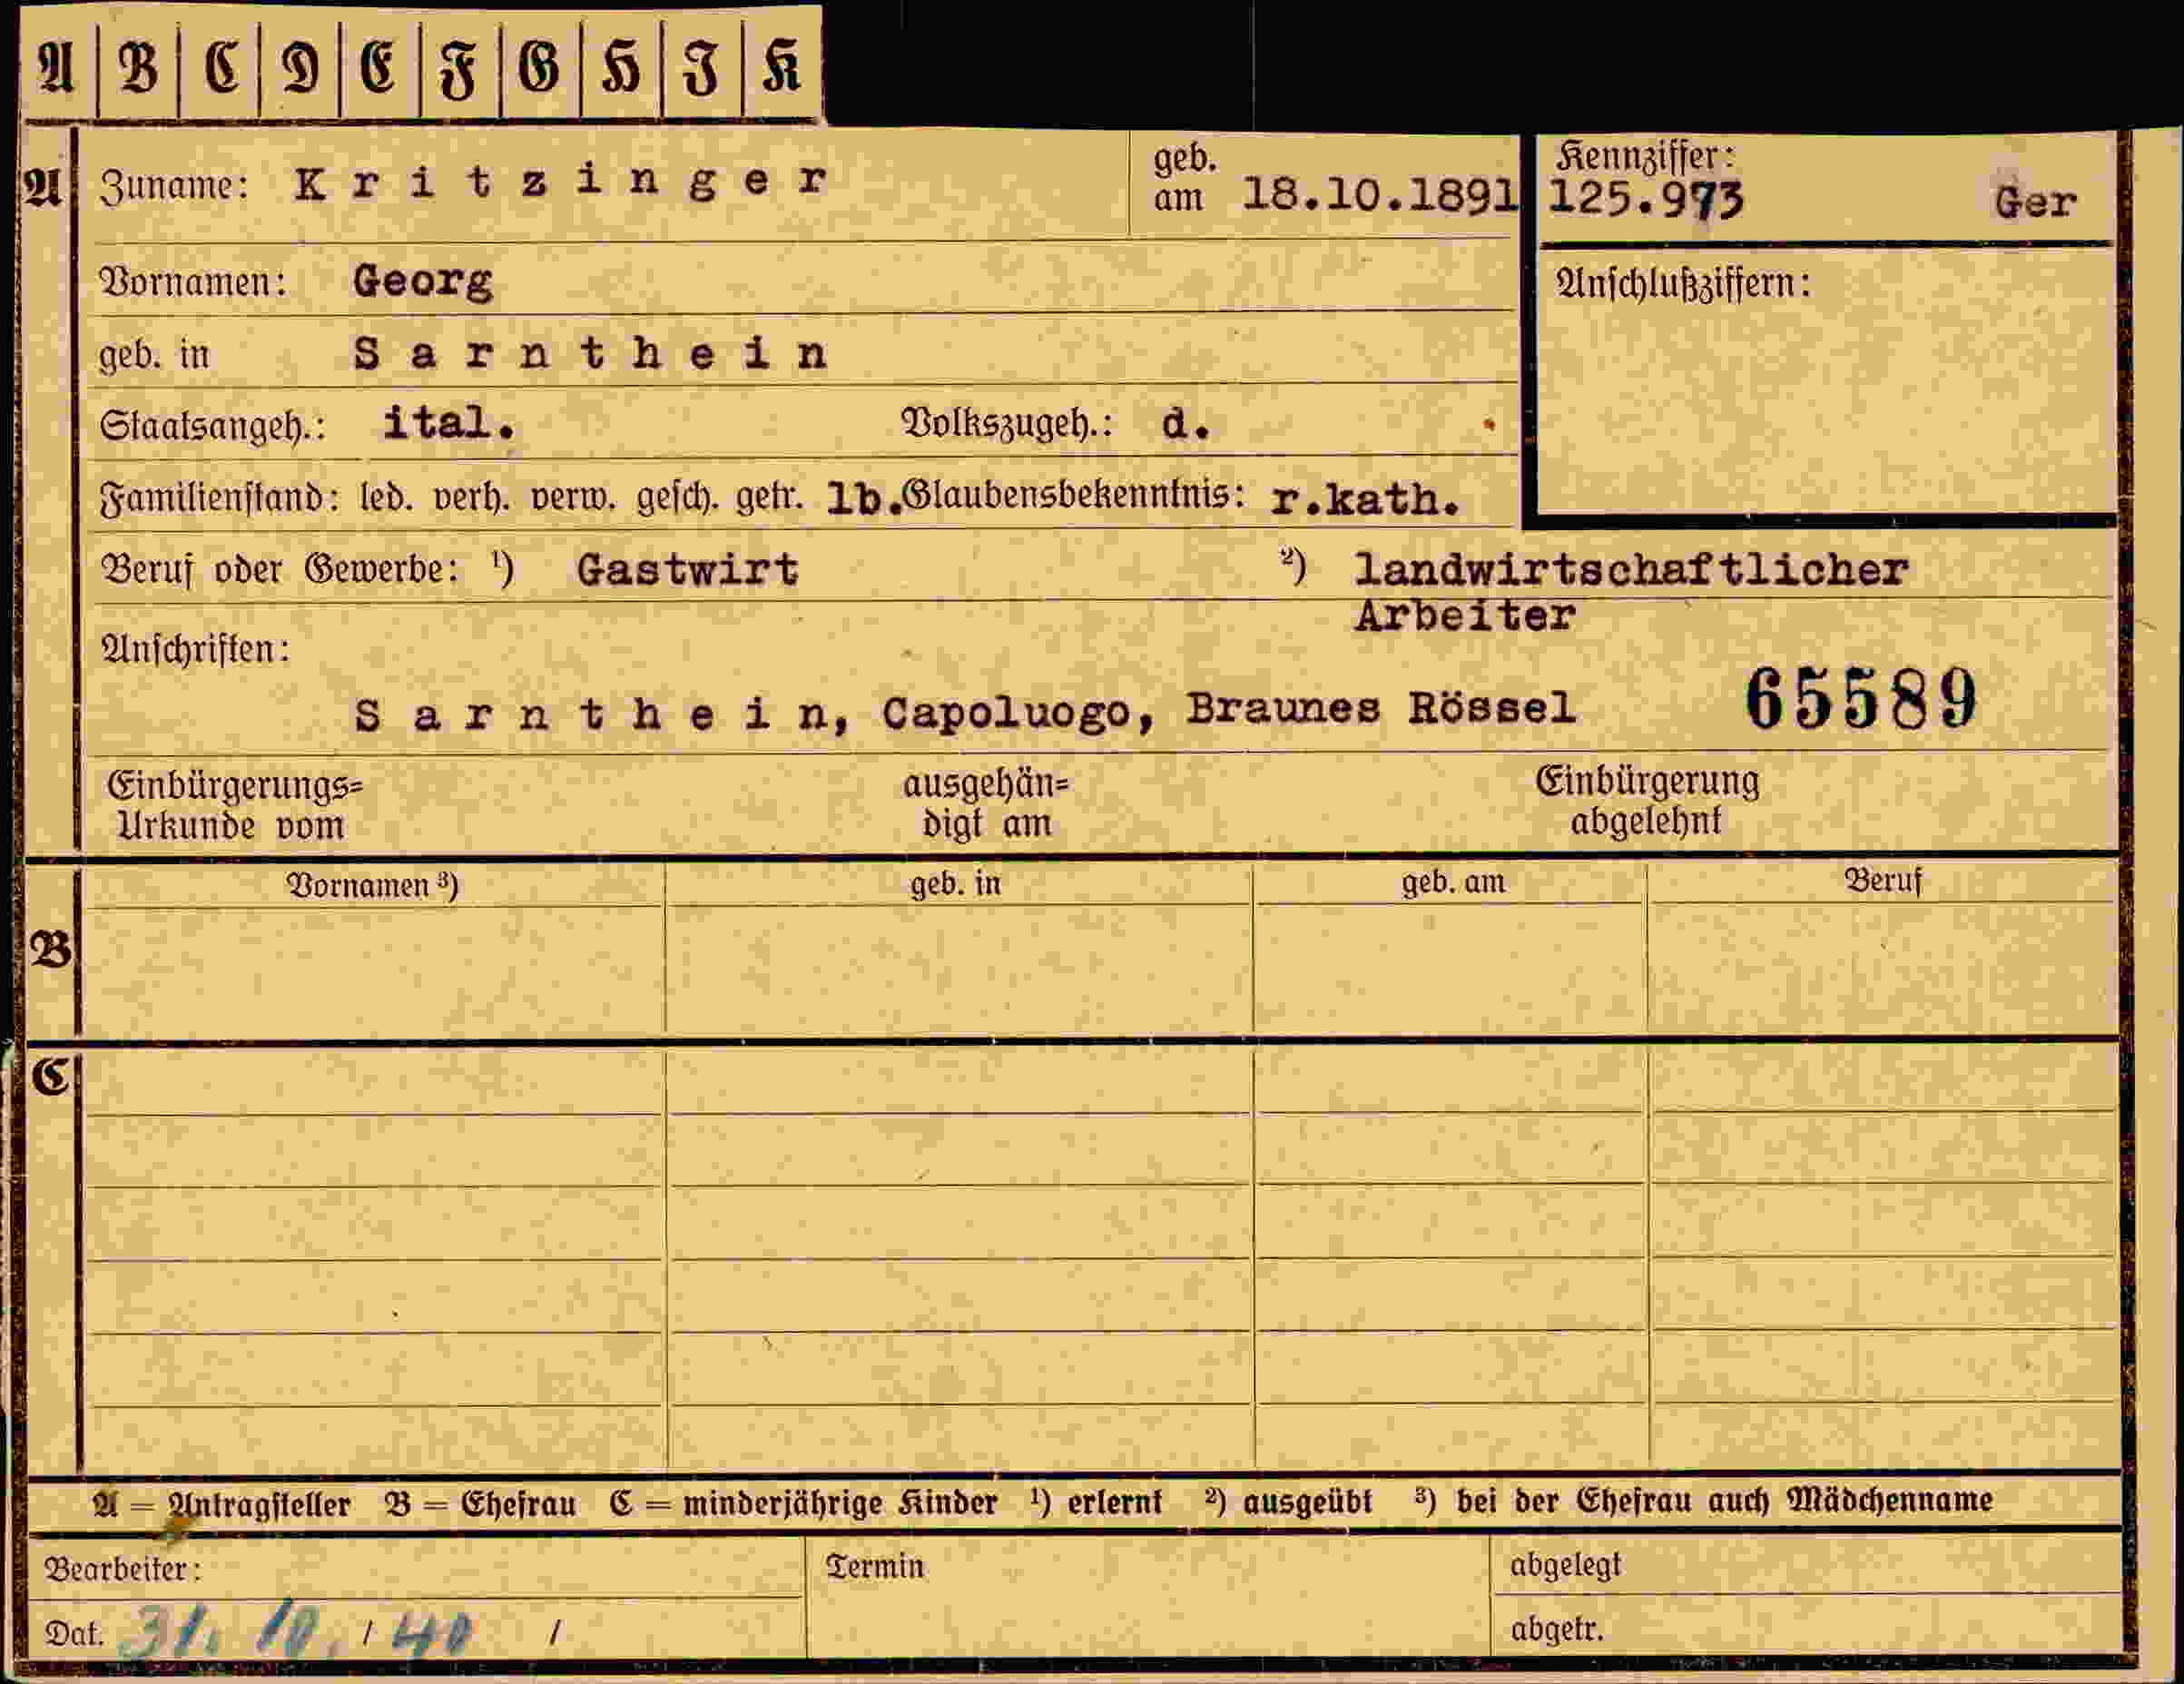 A B C D E F G H I K
A Zuname: Kritzinger geb. am 18.10.1891 Kennziffer: 125.973 Ger
Vornamen: Georg Anschlußziffern:
geb. in Sarnthein
Staatsangeh.: ital. Volkszugeh.: d.
Familienstand: led. verh. verw. gesch. getr. lb. Glaubensbekenntnis: r.kath.
Beruf oder Gewerbe: ¹) Gastwirt ²) landwirtschaftlicher
Arbeiter
Anschriften:
Sarnthein, Capoluogo, Braunes Rössel 65589
Einbürgerungs= ausgehän= Einbürgerung
Urkunde vom digt am abgelehnt
Vornamen ³) geb. in geb. am Beruf
B
C
A = Antragsteller B = Ehefrau C = minderjährige Kinder ¹) erlernt ²) ausgeübt ³) bei der Ehefrau auch Mädchenname
Bearbeiter: Termin abgelegt
Dat. 31. 10. / 40 / abgetr.